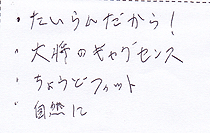 ・たいらんだから!
・大将のギャグセンス
・ちょうどフィット
・自然に